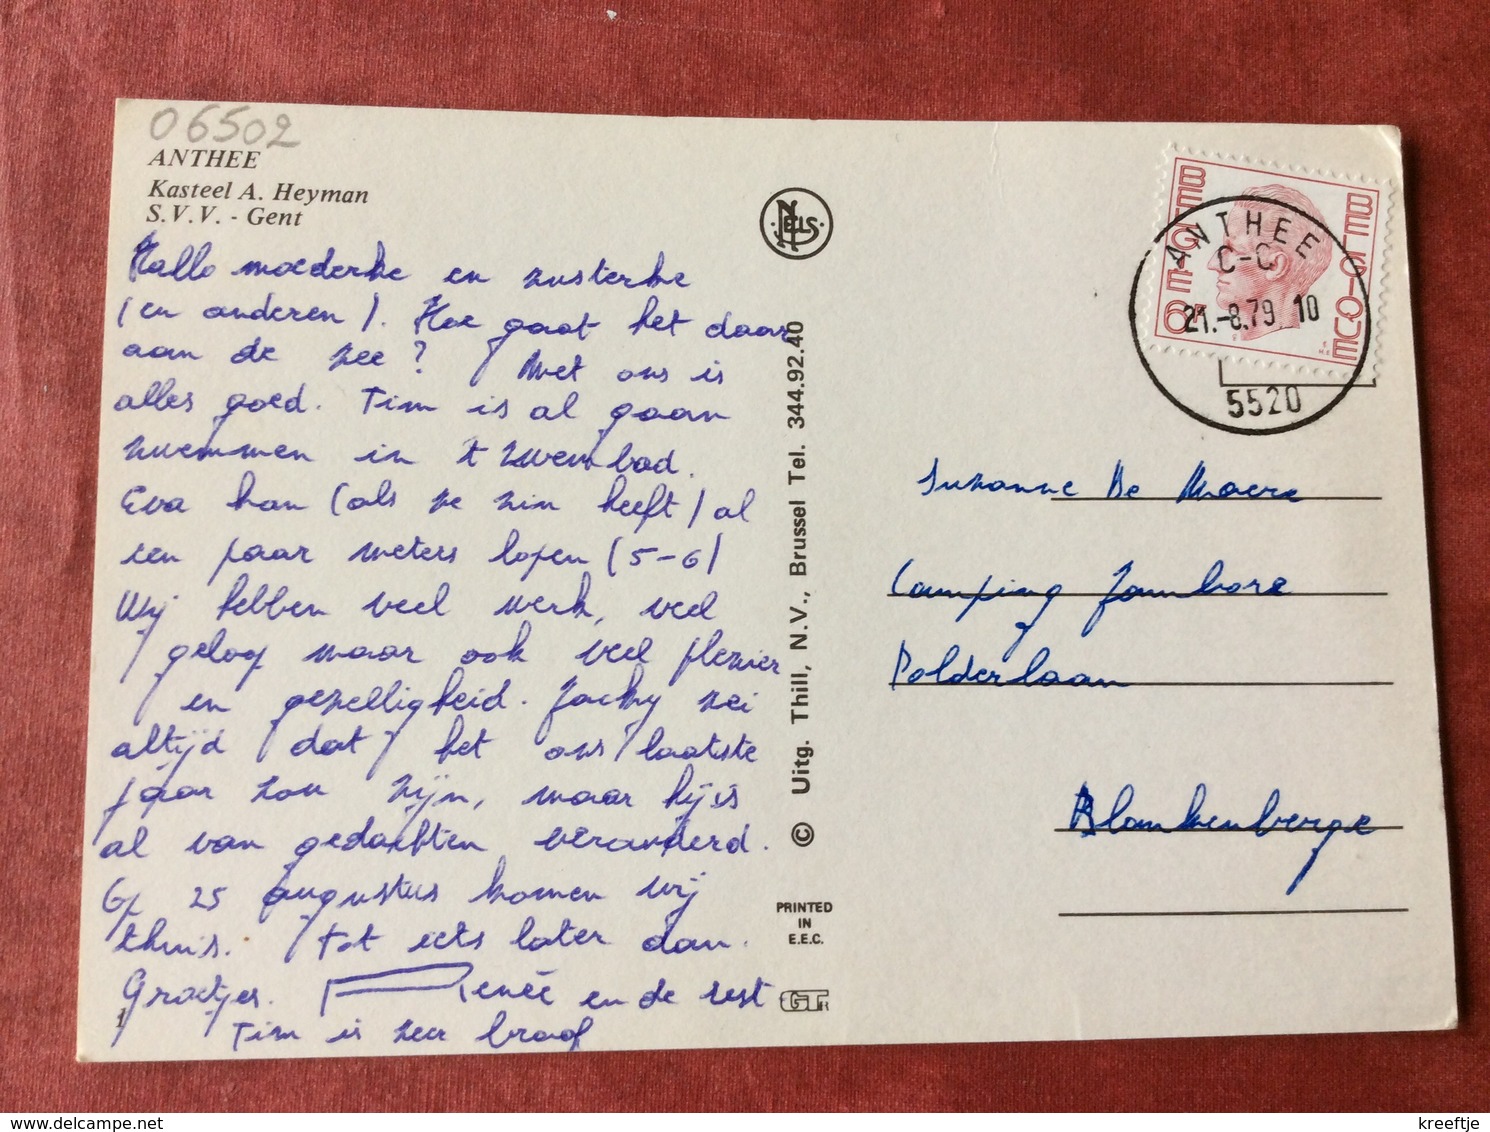 06502
ANTHEE
Kasteel A. Heyman
S.V.V. - Gent
Hallo moederke en zusterke
(en anderen). Hoe gaat het daar
aan de zee? Met ons is
alles goed. Tim is al gaan
zwemmen in 't zwembad.
Eva kan (als ze zin heeft) al
een paar meters lopen (5-6)
Wij hebben veel werk, veel
geloop maar ook veel plezier
en gezelligheid. Jacky zei
altijd dat het ons laatste
jaar zou zijn, maar hij is
al van gedachten veranderd.
Op 25 augustus komen wij
thuis. Tot iets later dan.
Groetjes. Renée en de rest
Tim is zeer braaf
NELS
© Uitg. Thill, N.V., Brussel Tel. 344.92.40
PRINTED
IN
E.E.C.
BELGIE BELGIQUE
ANTHEE
C-C
21.-8.79 10
5520
Suzanne De Maere
Camping Jamboree
Polderlaan
Blankenberge
kreeftje